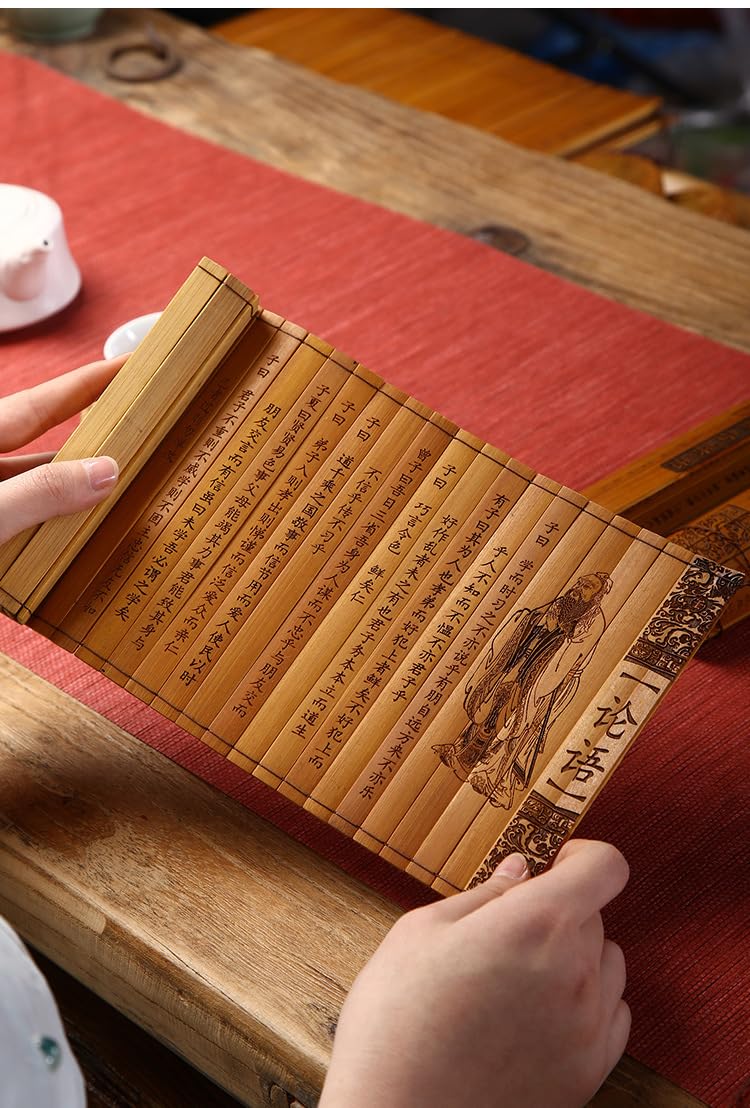 【论语】
子曰
学而时习之不亦说乎有朋自远方来不亦乐
乎人不知而不愠不亦君子乎
有子曰其为人也孝弟而好犯上者鲜矣不好犯上而
好作乱者未之有也君子务本本立而道生
子曰
巧言令色 鲜矣仁
曾子曰吾日三省吾身为人谋而不忠乎与朋友交而
不信乎传不习乎
子曰
道千乘之国敬事而信节用而爱人使民以时
子曰
弟子入则孝出则悌谨而信泛爱众而亲仁
子夏曰贤贤易色事父母能竭其力事君能致其身与
朋友交言而有信虽曰未学吾必谓之学矣
子曰
君子不重则不威学则不固主忠信无友不如